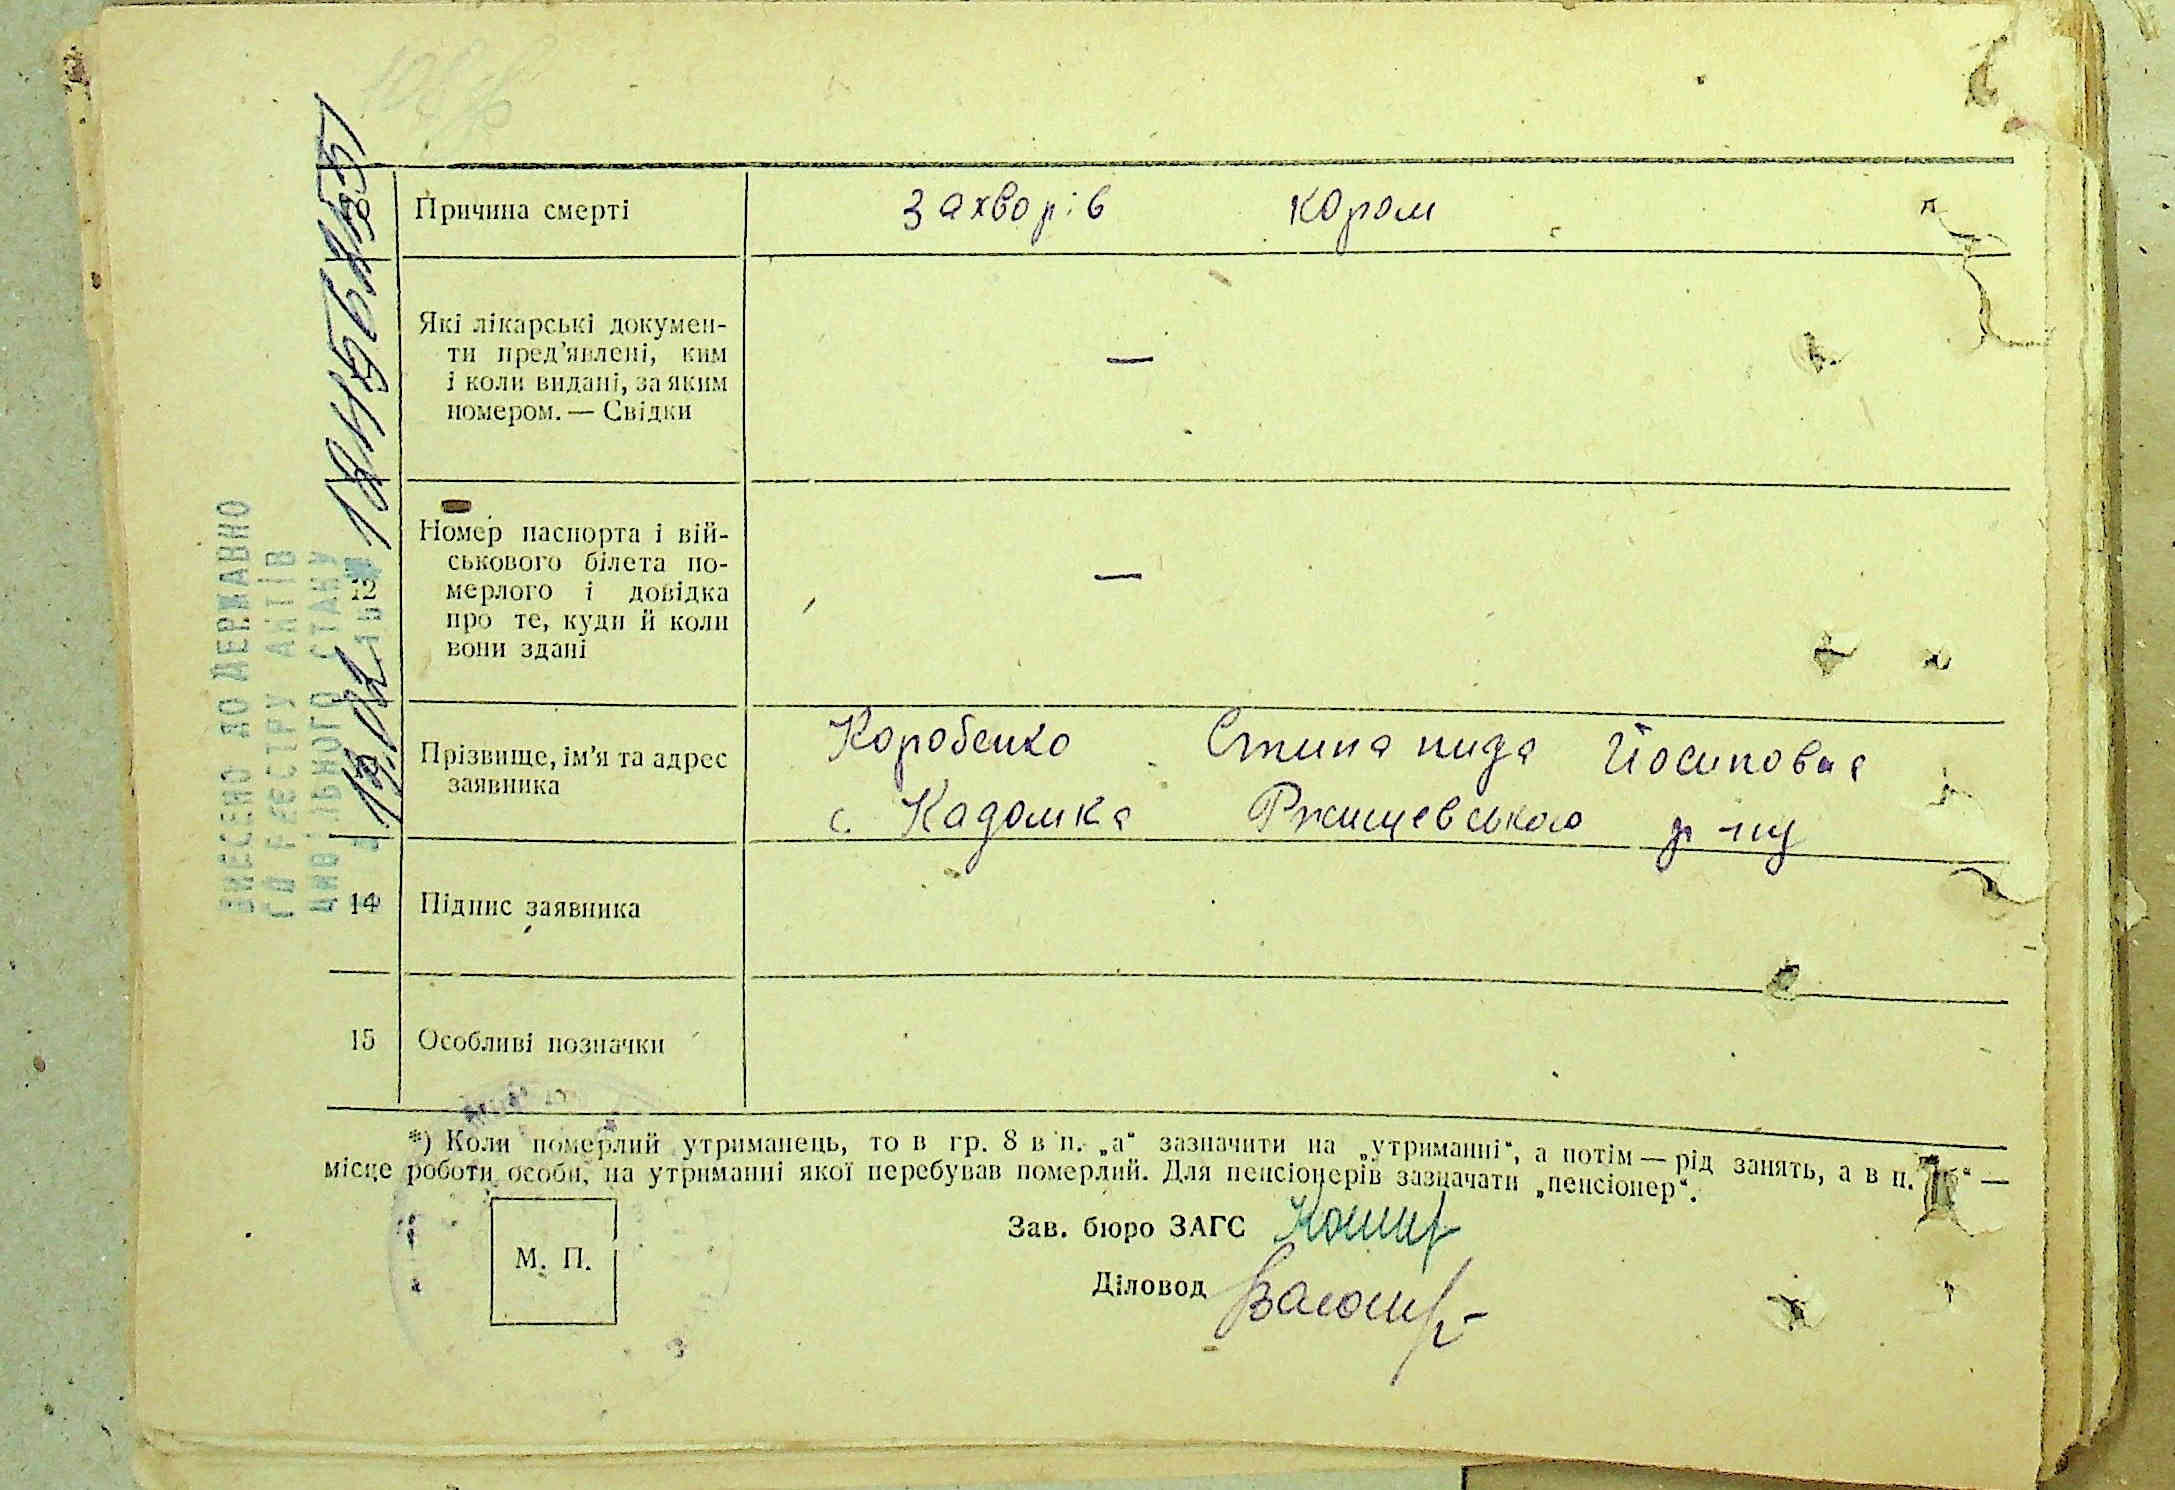 Причина смерті захворів кором
Які лікарські докумен-
ти пред'явлені, ким
і коли видані, за яким
номером. — Свідки —
12 Номер паспорта і вій-
ськового білета по-
мерлого і довідка
про те, куди й коли
вони здані —
Прізвище, ім'я та адрес
заявника
Коробенко Йосиповна
с. Кадомка Ржищевського р-ну
14 Підпис заявника
15 Особливі позначки
*) Коли померлий утриманець, то в гр. 8 в п. „а“ зазначити на „утриманні“, а потім — рід занять, а в п. —
місце роботи особи, на утриманні якої перебував померлий. Для пенсіонерів зазначати „пенсіонер“.
М. П.
Зав. бюро ЗАГС
Діловод
ВНЕСЕНО ДО ДЕРЖАВНО
ГО РЕЄСТРУ АКТІВ
ЦИВІЛЬНОГО СТАНУ